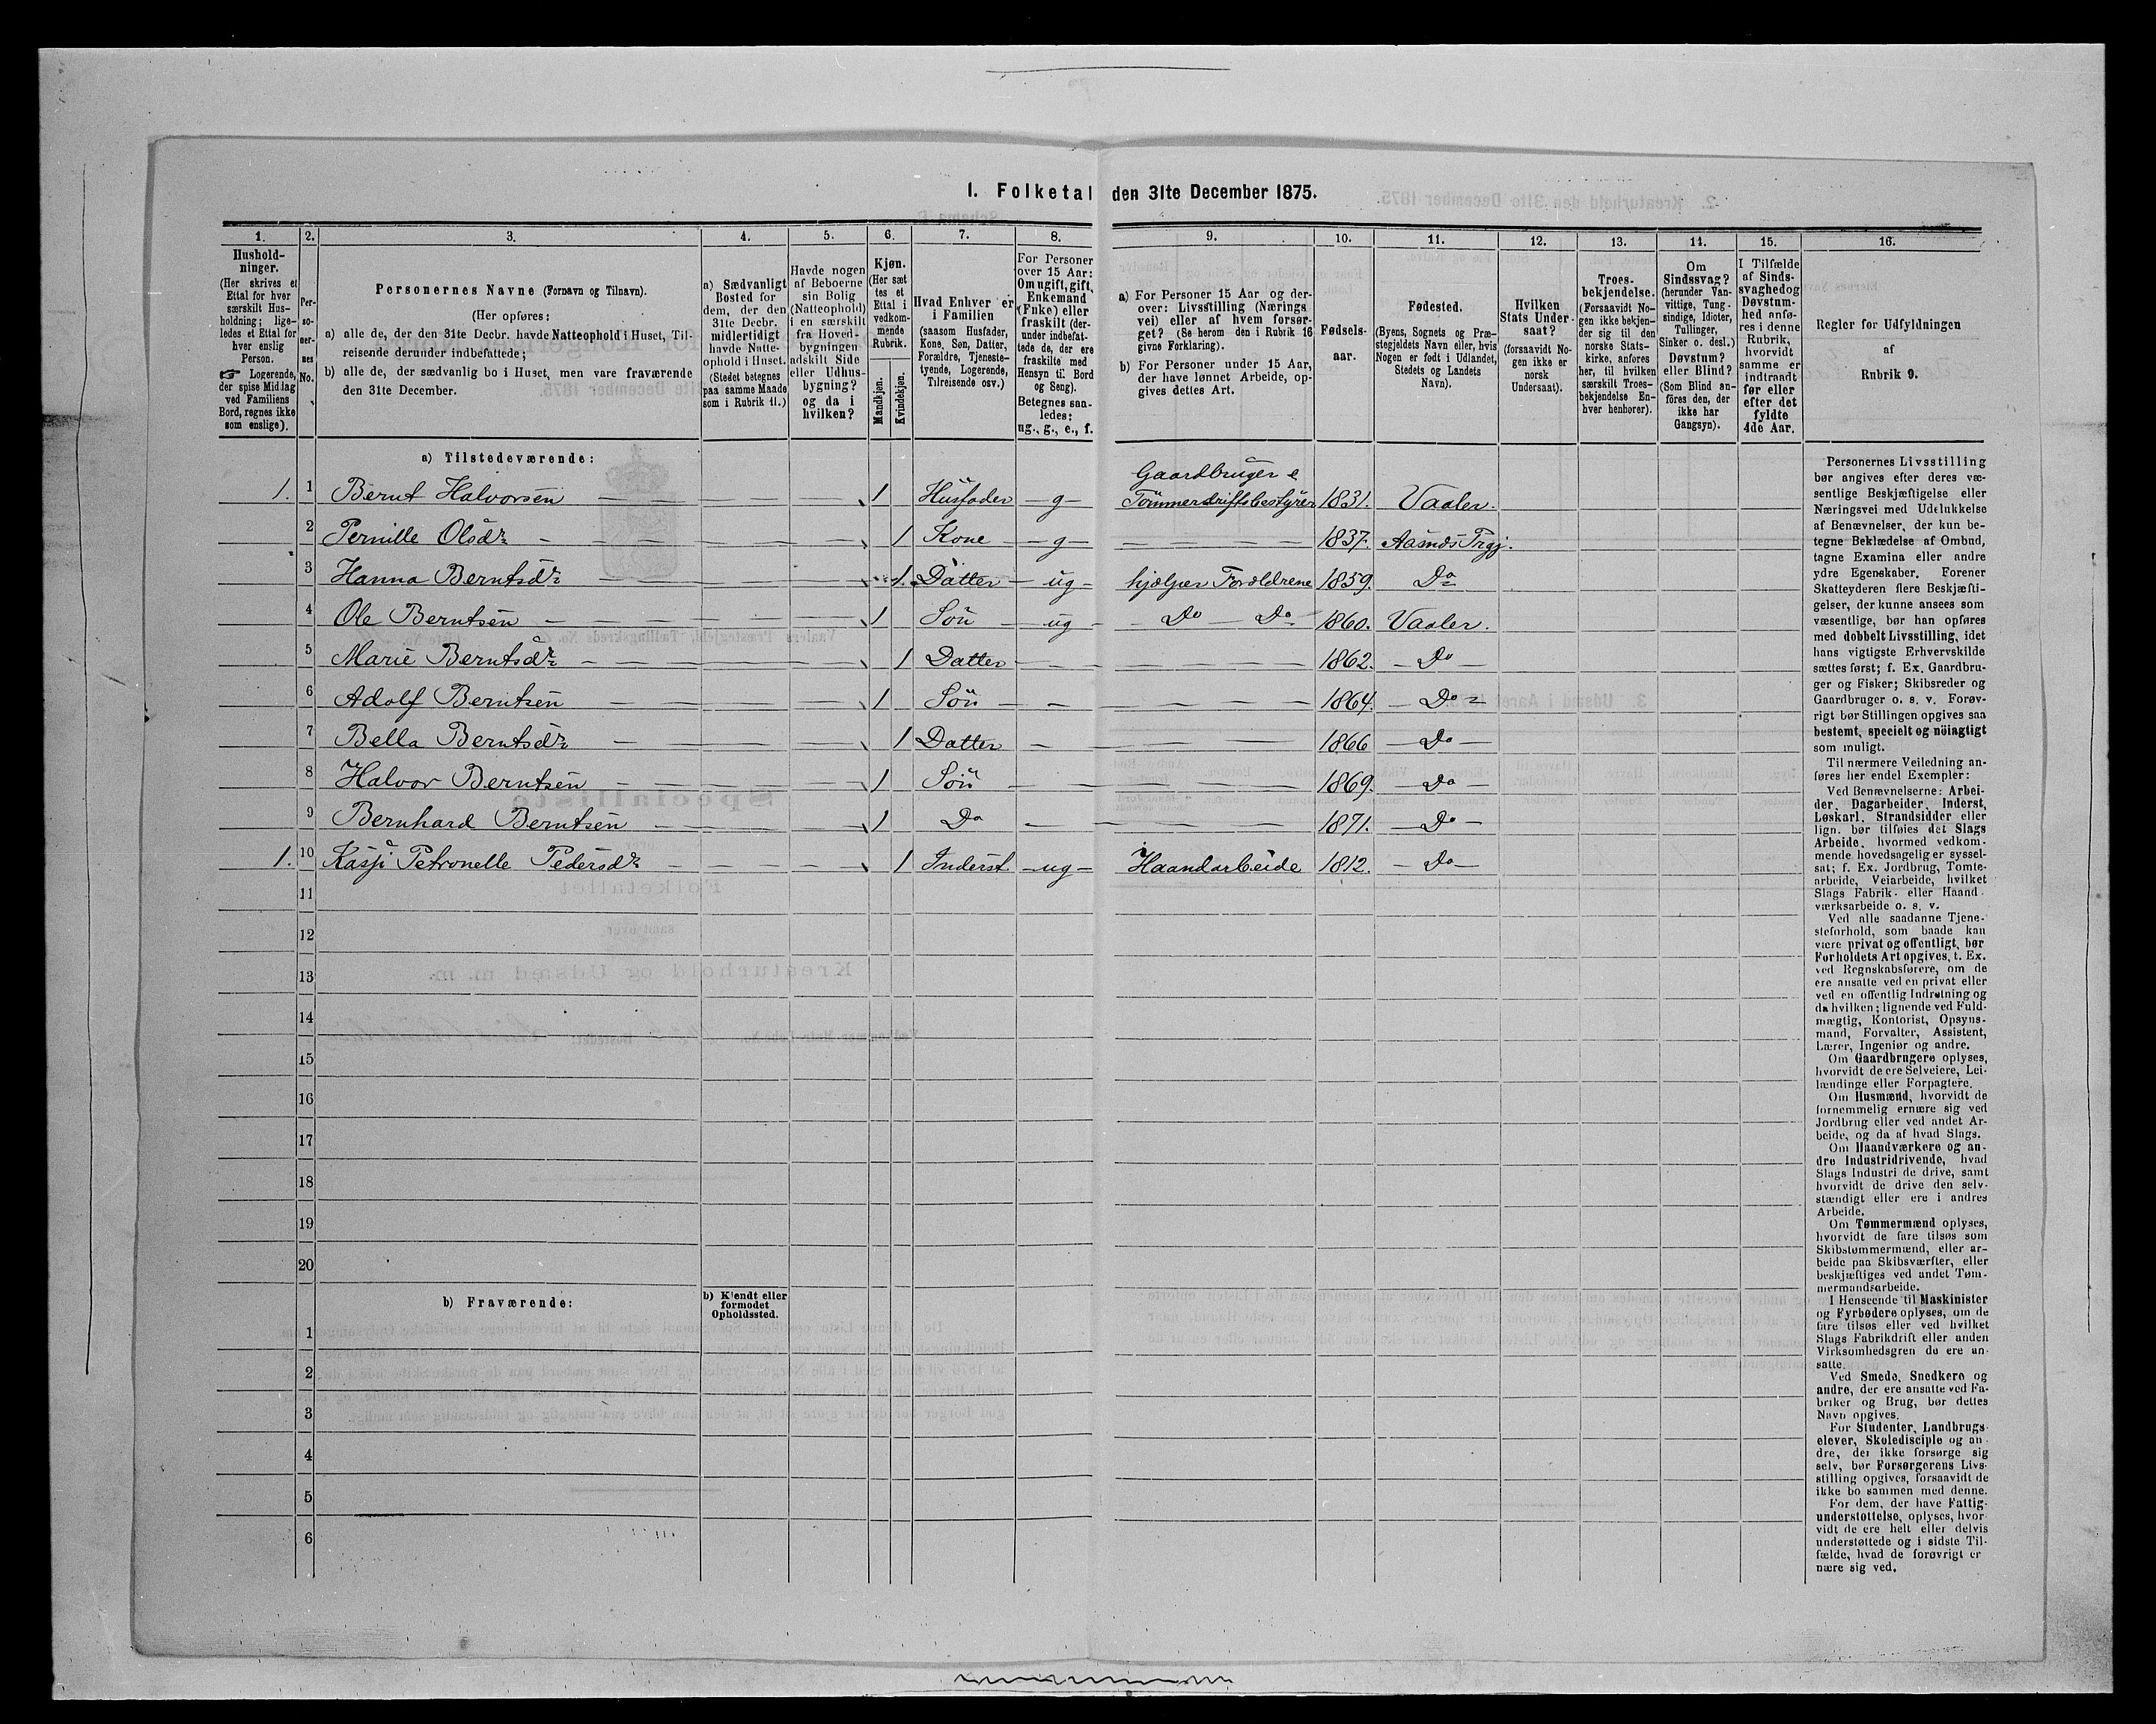 1. Folketal den 31te December 1875.
1. 2. 3. 4. 5. 6. 7. 8. 9. 10. 11. 12. 13. 14. 15. 16.
Hushold-
ninger.
(Her skrives et
Ettal for hver
særskilt Hus-
holdning; lige-
ledes et Ettal for
hver enslig
Person.
☞ Logerende,
der spise Middag
ved Familiens
Bord, regnes ikke
som enslige).
Per-
so-
ner-
nes
No.
Personernes Navne (Fornavn og Tilnavn).
(Her opføres:
a) alle de, der den 31te Decbr. havde Natteophold i Huset, Til-
reisende derunder indbefattede;
b) alle de, der sædvanlig bo i Huset, men vare fraværende
den 31te December.
a) Sædvanligt
Bosted for
dem, der den
31te Decbr.
midlertidigt
havde Natte-
ophold i Huset.
(Stedet betegnes
paa samme Maade
som i Rubrik 11.)
Havde nogen
af Beboerne
sin Bolig
(Natteophold)
i en særskilt
fra Hoved-
bygningen
adskilt Side
eller Udhus-
bygning?
og da i
hvilken?
Kjøn.
(Her sæt
tes et
Ettal i
vedkom-
mende
Rubrik.
Mandkjøn.
Kvindekjøn.
Hvad Enhver er
i Familien
(saasom Husfader,
Kone, Søn, Datter,
Forældre, Tjeneste-
tyende, Logerende,
Tilreisende osv.)
For Personer
over 15 Aar:
Om ugift, gift,
Enkemand
(Enke) eller
fraskilt (der-
under indbefat-
tede de, der ere
fraskilte med
Hensyn til Bord
og Seng).
Betegnes saa-
ledes:
ug., g., e., f.
a) For Personer 15 Aar og der-
over: Livsstilling (Nærings
vei) eller af hvem forsør-
get? (Se herom den i Rubrik 16
givne Forklaring).
b) For Personer under 15 Aar,
der have lønnet Arbeide, op-
gives dettes Art.
Fødsels-
aar.
Fødested.
(Byens, Sognets og Præ-
stegjeldets Navn eller, hvis
Nogen er født i Udlandet,
Stedets og Landets
Navn).
Hvilken
Stats Under-
saat?
(forsaavidt No-
gen ikke er
norsk
Undersaat).
Troes-
bekjendelse.
(Forsaavidt No-
gen ikke bekjen-
der sig til den
norske Stats-
kirke, anføres
her, til hvilken
særskilt Troes-
bekjendelse En-
hver henhører).
Om
Sindssvag?
(herunder Van-
vittige, Tung-
sindige, Idioter,
Tullinger,
Sinker o. desl.)
Døvstum?
eller Blind?
(Som Blind an-
føres den, der
ikke har
Gangsyn).
I Tilfælde
af Sinds-
svaghed og
Døvstum-
hed anfø-
res i denne
Rubrik,
hvorvidt
samme er
indtraadt
før eller
efter det
fyldte
4de Aar.
Regler for Udfyldningen
af
Rubrik 9.
a) Tilstedeværende:
1. 1 Bernt Halvorsen 1 Husfader g Gaardbruger e Tømmerdriftsbestyrer 1831. Vaaler.
2 Pernille Olsdr 1 Kone g 1837. Aasnæs Prgj.
3 Hanna Berntsdr 1 Datter ug hjælper Forældrene 1859. Do
4 Ole Berntsen 1 Søn ug Do Do 1860. Vaaler.
5 Marie Berntsdr 1 Datter 1862. Do
6 Adolf Berntsen 1 Søn 1864. Do
7 Bella Berntsdr 1 Datter 1866 Do
8 Halvor Berntsen 1 Søn 1869. Do
9 Bernhard Berntsen 1 Do 1871. Do
1. 10 Petronelle Pedersdr 1 Inderst. ug Haandarbeide 1812. Do
11
12
13
14
15
16
17
18
19
20
b) Fraværende:
b) Kjendt eller
formodet
Opholdssted.
1
2
3
4
5
6
Personernes Livsstilling
bør angives efter deres væ-
sentlige Beskjæftigelse eller
Næringsvei med Udelukkelse
af Benævnelser, der kun be-
tegne Beklædelse af Ombud,
tagne Examina eller andre
ydre Egenskaber. Forener
Skatteyderen flere Beskjæfti-
gelser, der kunne ansees som
væsentlige, bør han opføres
med dobbelt Livsstilling, idet
hans vigtigste Erhvervskilde
sættes først; f. Ex. Gaardbru-
ger og Fisker; Skibsreder og
Gaardbruger o. s. v. Forøv-
rigt bør Stillingen opgives saa
bestemt, specielt og nöiagtigt
som muligt.
Til nærmere Veiledning an-
føres her endel Exempler:
Ved Benævnelserne: Arbei-
der, Dagarbeider, Inderst,
Løskarl, Strandsidder eller
lign. bør tilføies det Slags
Arbeide, hvormed vedkom-
mende hovedsagelig er syssel-
sat; f. Ex. Jordbrug, Tomte-
arbeide, Veiarbeide, hvilket
Slags Fabrik- eller Haand-
værksarbeide o. s. v.
Ved alle saadanne Tjene-
steforhold, som baade kan
være privat og offentligt, bør
Forholdets Art opgives, t. Ex.
ved Regnskabsførere, om de
ere ansatte ved en privat eller
ved en offentlig Indretning og
da hvilken; lignende ved Fuld-
mægtig, Kontorist, Opsyns-
mand, Forvalter, Assistent,
Lærer, Ingeniør og andre.
Om Gaardbrugere oplyses,
hvorvidt de ere Selveiere, Lei-
lændinge eller Forpagtere.
Om Husmænd, hvorvidt de
fornemmelig ernære sig ved
Jordbrug eller ved andet Ar-
beide, og da af hvad Slags.
Om Haandværkere og an-
dre Industridrivende, hvad
Slags Industri de drive, samt
hvorvidt de drive den selv-
stændigt eller ere i andres
Arbeide.
Om Tømmermænd oplyses,
hvorvidt de fare tilsøs som
Skibstømmermænd, eller ar-
beide paa Skibsværfter, eller
beskjæftiges ved andet Tøm-
mermandsarbeide.
I Henseende til Maskinister
og Fyrbødere oplyses, om de
fare tilsøs eller ved hvilket
Slags Fabrikdrift eller anden
Virksomhedsgren de ere an-
satte.
Ved Smede, Snedkere og
andre, der ere ansatte ved Fa-
briker og Brug, bør dettes
Navn opgives.
For Studenter, Landbrugs-
elever, Skoledisciple og an-
dre, der ikke forsørge sig
selv, bør Forsørgerens Livs-
stilling opgives, forsaavidt de
ikke bo sammen med denne.
For dem, der have Fattig-
understøttelse, oplyses, hvor-
vidt de ere helt eller delvis
understøttede og i sidste Til-
fælde, hvad de forøvrigt er
nære sig ved.